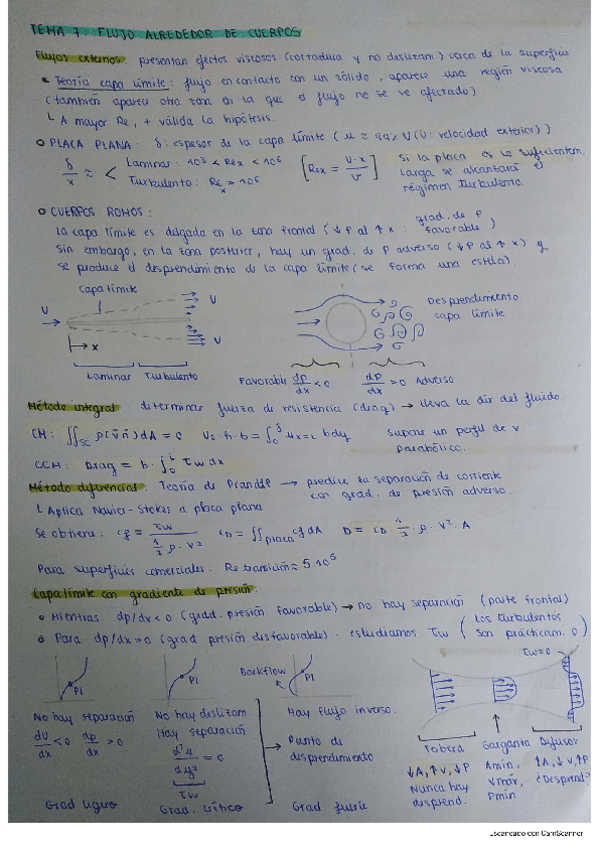 TEMA 7 FLUJO ALREDEDOR DE CUERPOS
Flujos externos presentan efectos viscosos (cortadura y no deslizam.) cerca de la superficie
* Teoría capa límite: flujo en contacto con un sólido, aparece una región viscosa
(también aparece otra zona en la que el flujo no se ve afectado)
L A mayor Re, + válida la hipótesis.
o PLACA PLANA: δ: espesor de la capa límite (u ≈ 0.99 U (U: velocidad exterior))
δ/x ≈ < Laminar: 10³ < Rex < 10⁶ [Rex = U·x/ν] Si la placa es lo suficientem.
Turbulento: Rex > 10⁶ larga se alcanzará el
régimen turbulento
o CUERPOS ROMOS:
La capa límite es delgada en la zona frontal (↓P al ↑x : grad. de P favorable)
Sin embargo, en la zona posterior, hay un grad. de P adverso (↓P al ↑x) y
se produce el desprendimiento de la capa límite (se forma una estela).
Capa límite
U
U
U
x
Laminar Turbulento
Desprendimiento
capa límite
Favorable dp/dx < 0 dp/dx > 0 Adverso
Método integral determinar fuerza de resistencia (drag) → lleva la dir del fluido
CM: ∬SC ρ(v̄n̄)dA = 0 U·h·b = ∫ u x=L b dy Supone un perfil de v
parabólico.
CCM: Drag = b·∫₀ᴸ τw dx
Método diferencial. Teoría de Prandtl → predice la separación de corriente
con grad. de presión adverso.
L Aplica Navier-Stokes a placa plana
Se obtiene: cf = τw / ½ρ·V² CD = ∬placa cf dA D = CD·½·ρ·V²·A
Para superficies comerciales: Re transición ≈ 5·10⁵
Capa límite con gradiente de presión.
o Mientras dp/dx < 0 (grad. presión favorable) → no hay separación (parte frontal)
o Para dp/dx = 0 (grad presión desfavorable). estudiamos τw (Los turbulentos
son prácticam. 0)
τw=0
PI
PI
Backflow
PI
No hay separación
dU/dx < 0 dp/dx > 0
Grad ligero
No hay deslizam
Hay separación
d²u/dy² = 0
τw
Grad. crítico
Hay flujo inverso.
Punto de
desprendimiento
Grad fuerte
Tobera
↓A, ↑v, ↓P
Nunca hay
desprend.
Garganta
Amín,
vmáx,
Pmín
Difusor
↑A, ↓v, ↑P
¿Desprend?
Escaneado con CamScanner